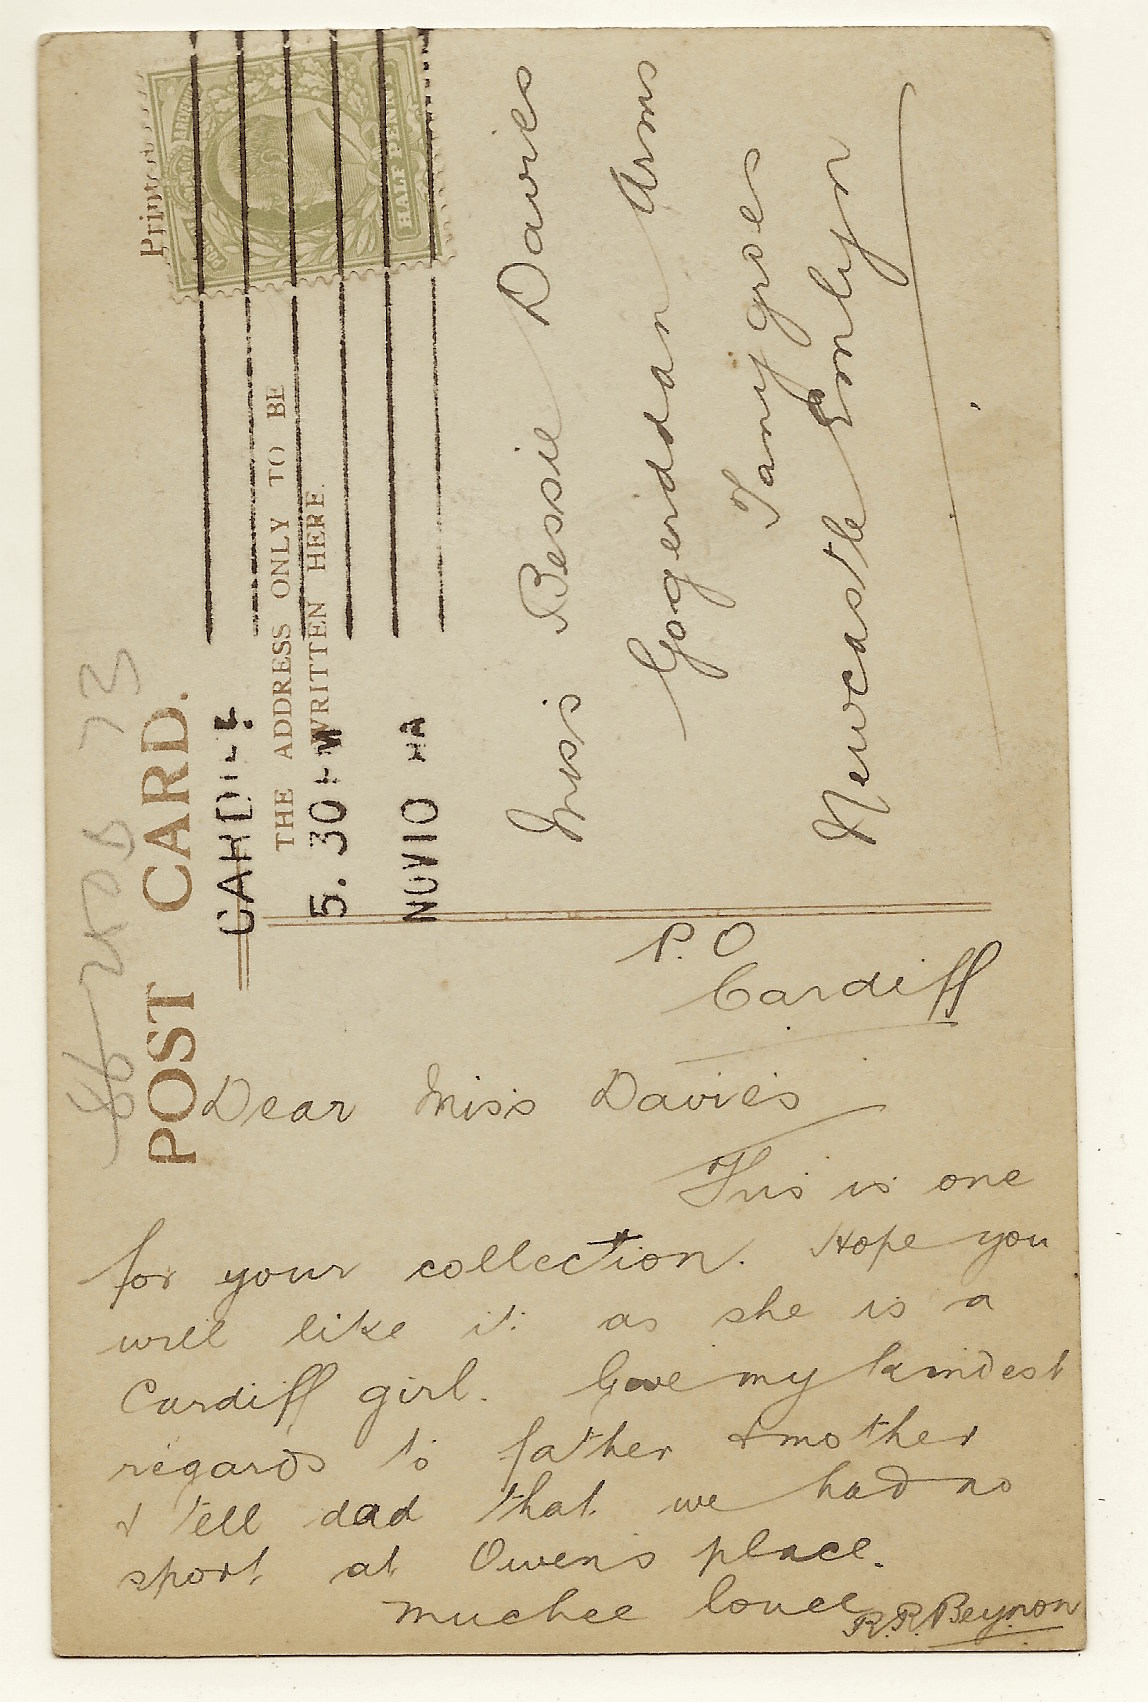 POST CARD.
THE ADDRESS ONLY TO BE
WRITTEN HERE.
HALF PENNY
CARDIFF
5. 30 PM
NOV 10
Miss Bessie Davies
Gogerddan Arms
Tanygroes
Newcastle Emlyn
P. O
Cardiff
Dear Miss Davies
This is one
for your collection. Hope you
will like it as she is a
Cardiff girl. Give my kindest
regards to father & mother
& tell dad that we had no
sport at Owen's place.
Muchee lovee
R.R. Beynon